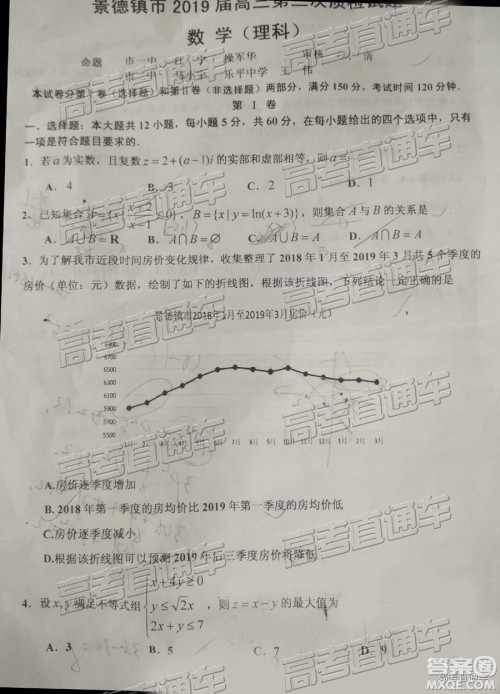 景德镇市2019届高三第二次质检试题
数学(理科)
命题 市一中 江 宁 操军华 审核 刘 倩
市二中 马小宇 乐平中学 王 伟
本试卷分第I卷(选择题)和第II卷(非选择题)两部分,满分150分,考试时间120分钟.
第 I 卷
一、选择题:本大题共12小题,每小题5分,共60分,在每小题给出的四个选项中,只有
一项是符合题目要求的.
1.若a为实数,且复数z=2+(a-1)i的实部和虚部相等,则a=
A.4 B.3 C.2 D.1
2.已知集合A={x| x+2/x-1 ≤0},B={x|y=ln(x+3)},则集合A与B的关系是
A.A∪B=R B.A∩B=∅ C.A∪B=A D.A∩B=A
3.为了解我市近段时间房价变化规律,收集整理了2018年1月至2019年3月共5个季度的
房价(单位:元)数据,绘制了如下的折线图,根据该折线图,下列结论一定正确的是
景德镇市2018年1月至2019年3月房价(元)
6900
6700
6500
6300
6100
5900
5700
1月 2月 3月 4月 5月 6月 7月 8月 9月 10月 11月 12月 1月 2月 3月
A.房价逐季度增加
B.2018年第一季度的房均价比2019年第一季度的房均价低
C.房价逐季度减小
D.根据该折线图可以预测2019年后三季度房价将降低
4.设x,y满足不等式组{x+4y≥0
y≤√2x ,则z=x-y的最大值为
2x+y≤7
A.3 B.5 C.7 D.9
高考直通车
答案圈